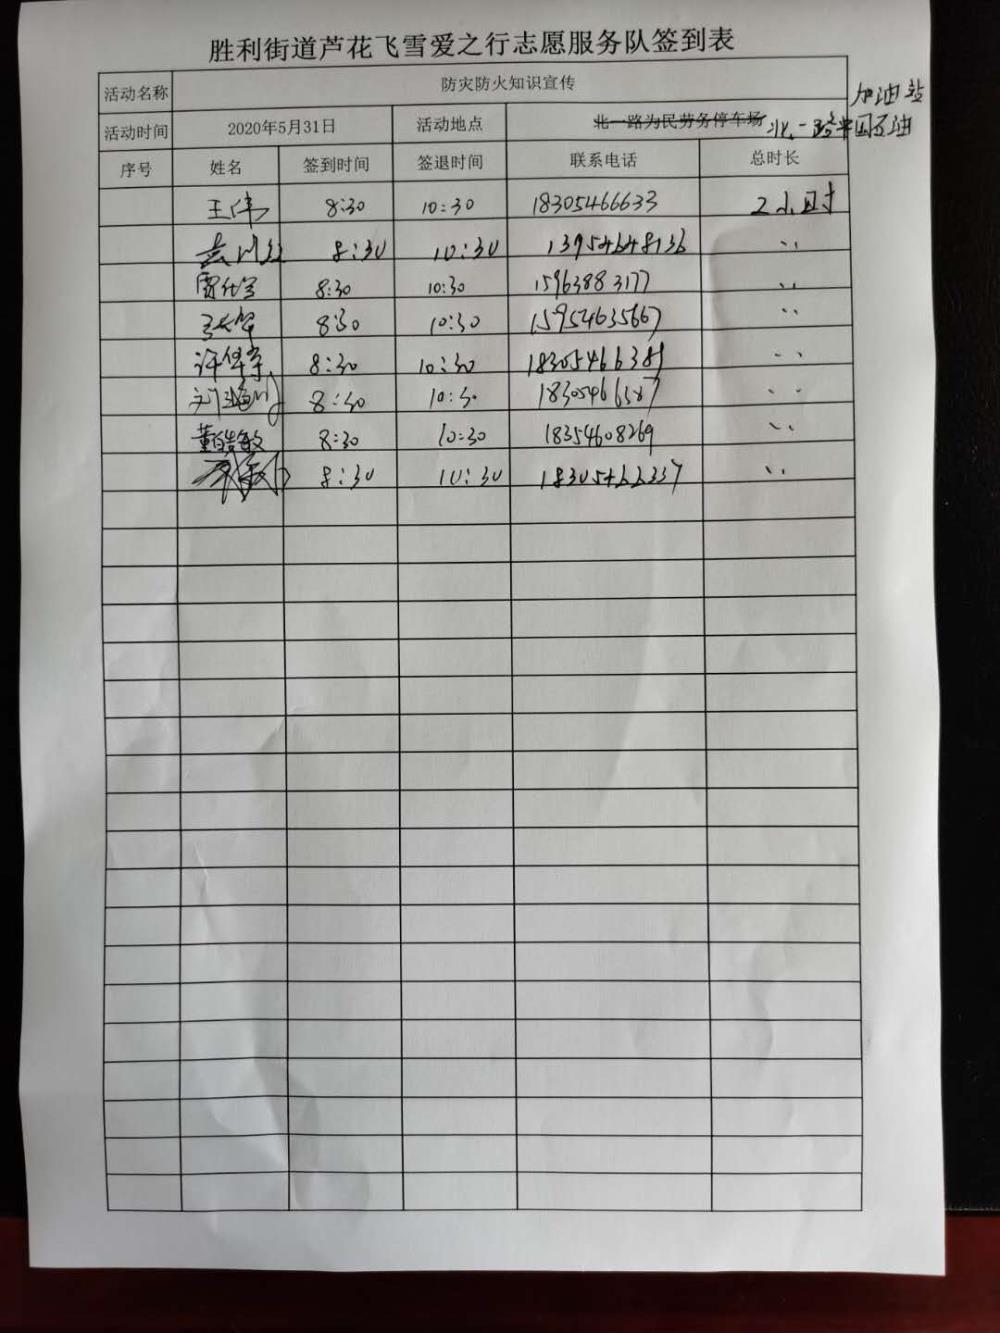 胜利街道芦花飞雪爱之行志愿服务队签到表
活动名称 防灾防火知识宣传
加油站
活动时间 2020年5月31日 活动地点 北一路为民劳务停车场 北一路中国石油
序号 姓名 签到时间 签退时间 联系电话 总时长
王伟 8:30 10:30 18305466633 2小时
8:30 10:30 13954648136 〃
8:30 10:30 15963883177 〃
8:30 10:30 15954635667 〃
许伟 8:30 10:30 18305466381 〃
8:30 10:30 〃
董皓敏 8:30 10:30 18354608269 〃
8:30 10:30 18305466337 〃